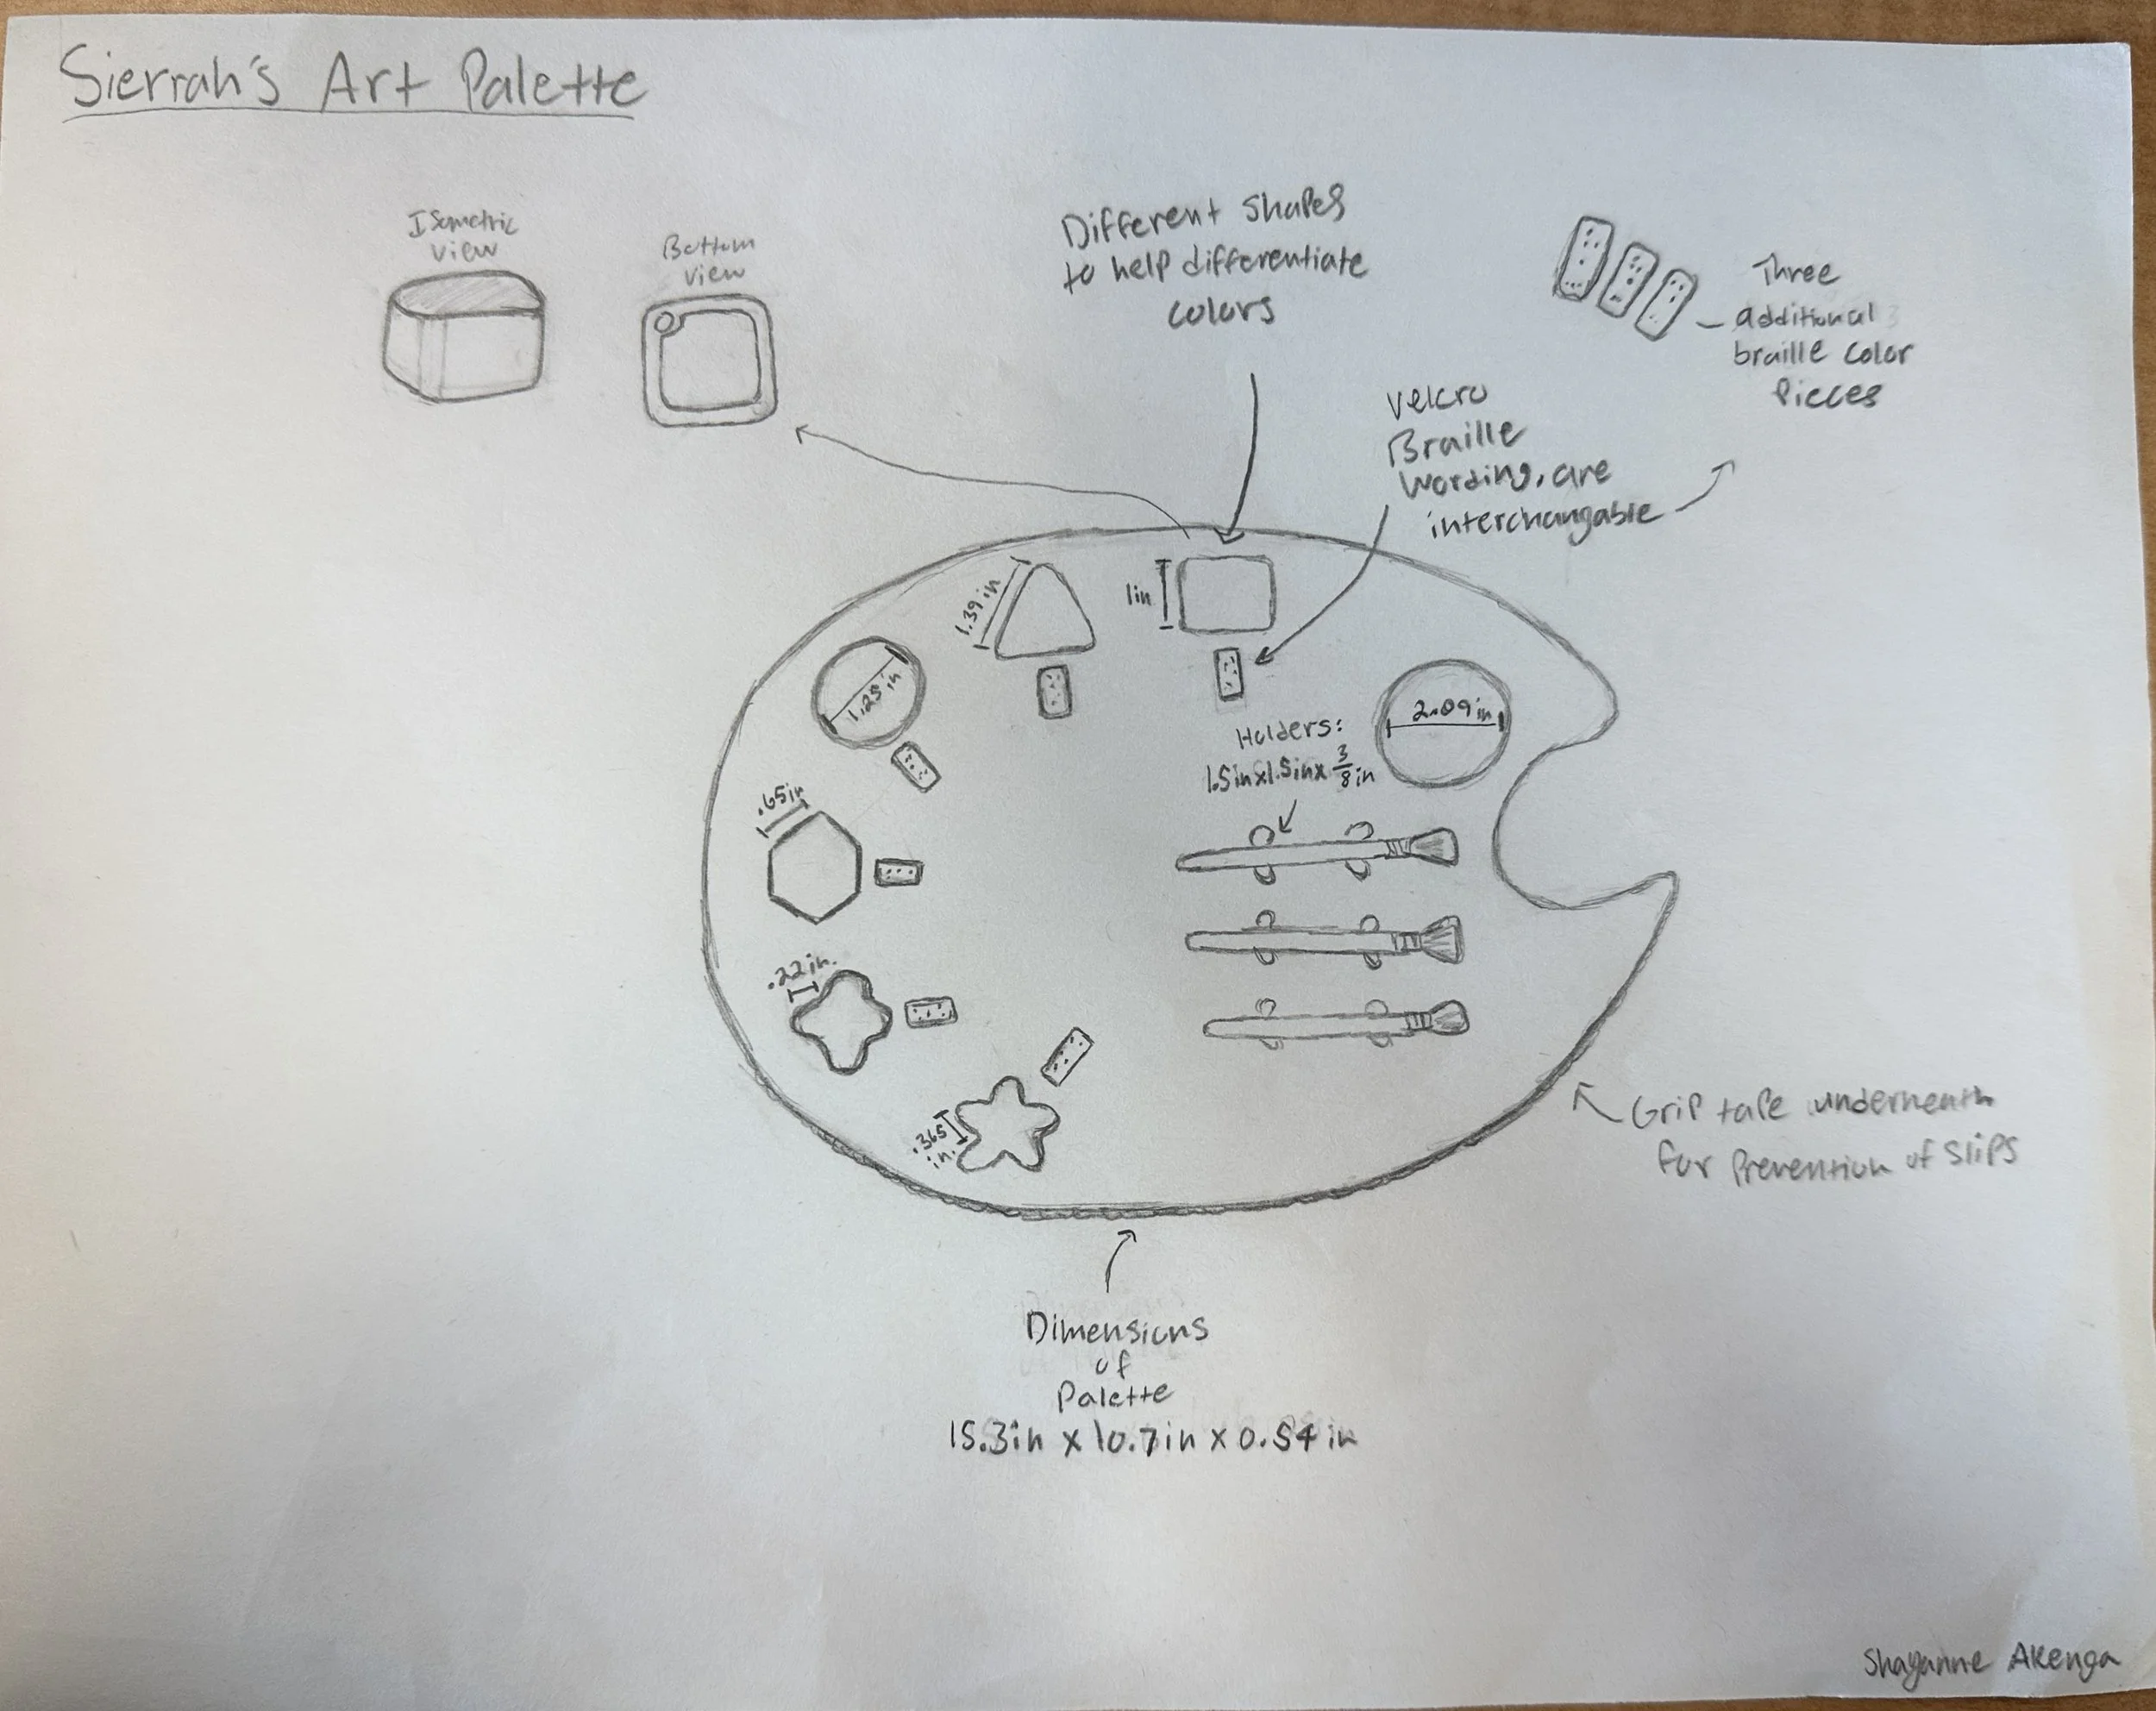 Sierrah's Art Palette
Isometric
view
Bottom
view
Different shapes
to help differentiate
colors
Three
additional
braille color
Pieces
Velcro
Braille
Wording, are
interchangable
1.39 in
1in
1.25 in
2.09 in
Holders:
1.5in x 1.5in x 3/8 in
.65in
.22in.
.365
in.
Grip tape underneath
for prevention of slips
Dimensions
of
Palette
15.3in x 10.7in x 0.54 in
Shayanne Akenga